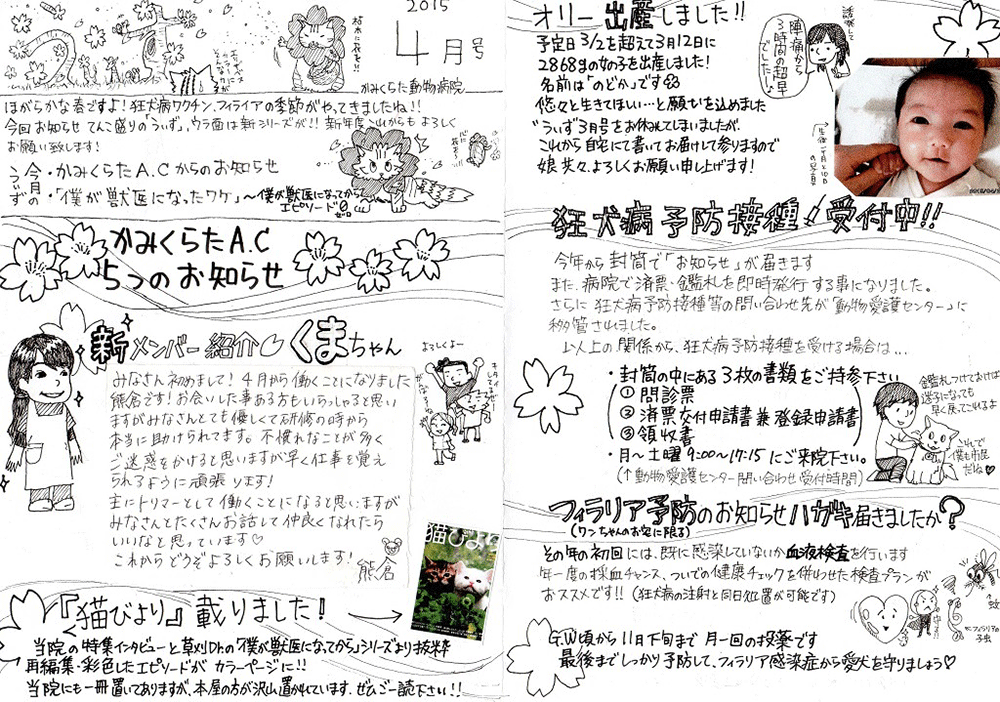 2015
4月号
かみくらた動物病院
ほがらかな春ですよ！狂犬病ワクチン、フィラリアの季節がやってきましたね!!
今回お知らせてんこ盛りの「うぃず」。ウラ面は新シリーズが!! 新年度これからもよろしく
お願い致します！
今月の
うぃず
・かみくらたA.Cからのお知らせ
・「僕が獣医になったワケ」～僕が獣医になってから
エピソード0
ゼロ
かみくらたA.C
5つのお知らせ
新メンバー紹介 くまちゃん
よろしくよー
みなさん初めまして！4月から働くことになりました
熊倉です！お会いした事ある方もいらっしゃると思い
ますがみなさんとても優しくて研修の時から
本当に助けられてます。不慣れなことが多く
ご迷惑をかけると思いますが早く仕事を覚え
られるように頑張ります！
主にトリマーとして働くことになると思いますが
みなさんとたくさんお話して仲良くなれたら
いいなと思っています♡
これからどうぞよろしくお願いします！
熊倉
猫びより
『猫びより』載りました！
当院の特集インタビューと草刈Dr.の「僕が獣医になってから」シリーズより抜粋
再編集・彩色したエピソードがカラーページに!!
当院にも一冊置いてありますが、本屋の方が沢山置かれています。ぜひご一読下さい!!
オリー出産しました!!
予定日3/2を超えて3月12日に
2868gの女の子を出産しました！
名前は「のどか」です
悠々と生きてほしい…と願いを込めました
"うぃず3月号をお休みしてしまいましたが、
これから自宅にて書いてお届けして参りますので
娘共々、よろしくお願い申し上げます！
陣痛から
3時間の超早
でした！
狂犬病予防接種 受付中!!
今年から封筒で「お知らせ」が届きます
また、病院で済票・鑑札を即時発行する事になりました。
さらに狂犬病予防接種等の問い合わせ先が「動物愛護センター」に
移管されました。
以上の関係から、狂犬病予防接種を受ける場合は…
・封筒の中にある3枚の書類をご持参下さい
① 問診票
② 済票交付申請書兼登録申請書
③ 領収書
・月～土曜 9:00～17:15 にご来院下さい。
(↑動物愛護センター問い合わせ受付時間)
鑑札つけておけば
迷子になっても
早く戻ってこれるよ
これで
僕も市民
だね♥
フィラリア予防のお知らせハガキ届きましたか？
(ワンちゃんのお宅に限る)
その年の初回には、既に感染していないか血液検査を行います
年一度の採血チャンス、ついでの健康チェックを併わせた検査プランが
おススメです!!（狂犬病の注射と同日処置が可能です）
↑蚊
↑フィラリアの
子虫
G.W頃から11月下旬まで 月一回の投薬です
最後までしっかり予防して、フィラリア感染症から愛犬を守りましょう♡